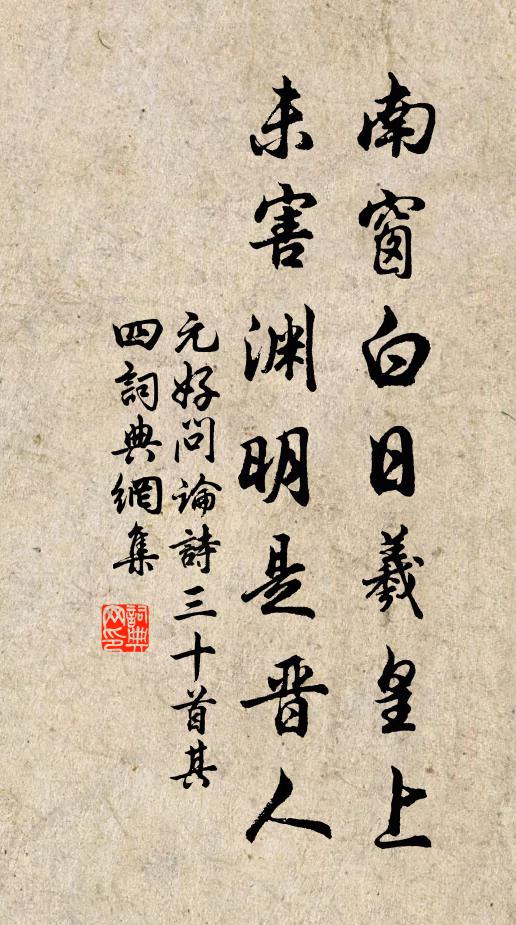 南窗白日羲皇上
未害渊明是晋人
元好问論詩三十首其
四詞典網集
詞典网印